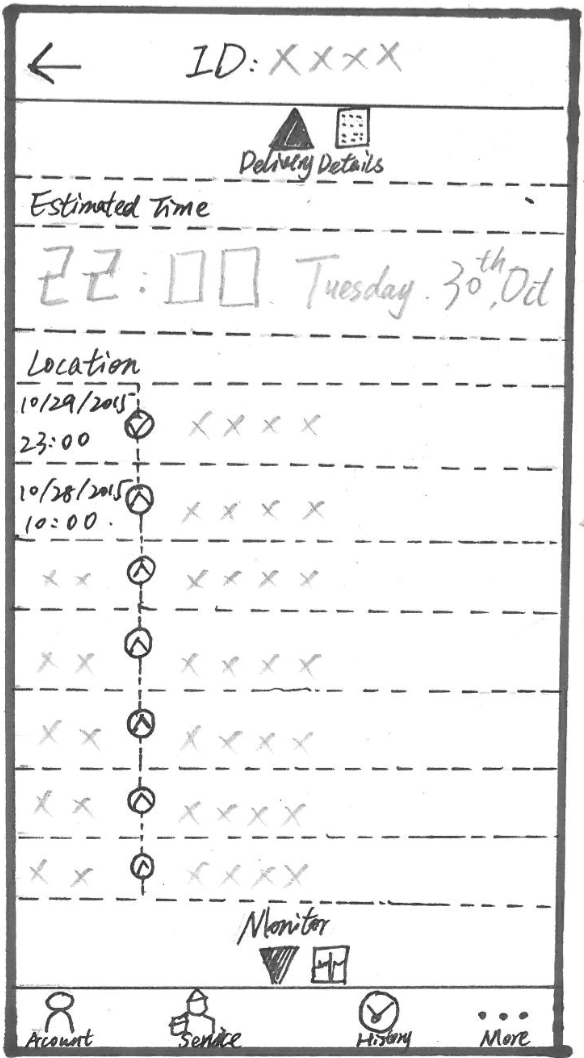 ID: XXXX
Delivery Details
Estimated Time
22:00 Tuesday. 30th, Oct
Location
10/29/2015
23:00 XXXX
10/28/2015
10:00. XXXX
XX XXXX
XX XXXX
XX XXXX
XX XXXX
XX XXXX
Monitor
Account Service History More